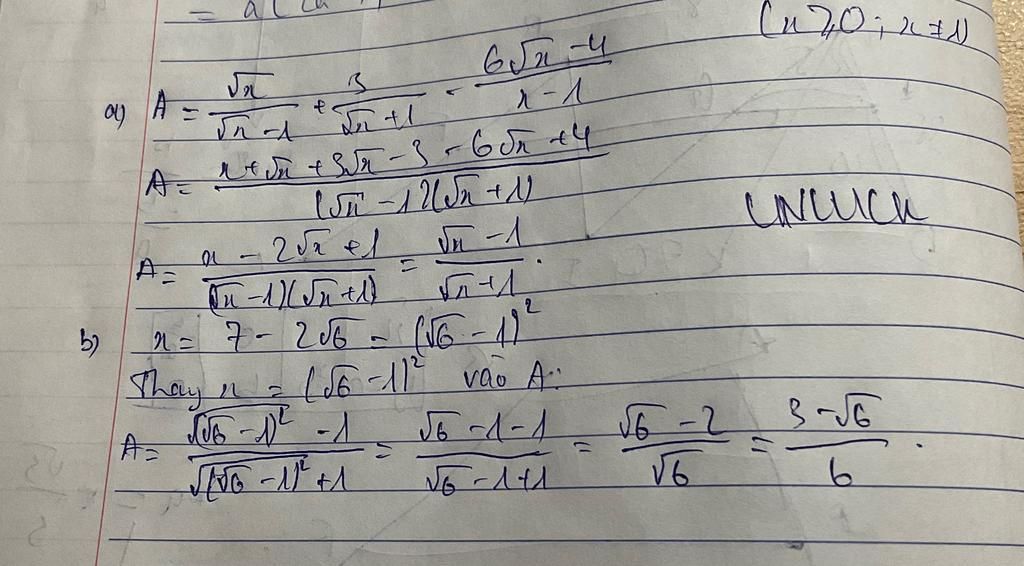 (x ≥ 0 ; x ≠ 1)
a) A = √x/(√x - 1) + 3/(√x + 1) - (6√x - 4)/(x - 1)
A = (x + √x + 3√x - 3 - 6√x + 4)/((√x - 1)(√x + 1))
A = (x - 2√x + 1)/((√x - 1)(√x + 1)) = (√x - 1)/(√x + 1) .
b) x = 7 - 2√6 = (√6 - 1)²
Thay x = (√6 - 1)² vào A:
A = (√(√6 - 1)² - 1)/(√(√6 - 1)² + 1) = (√6 - 1 - 1)/(√6 - 1 + 1) = (√6 - 2)/√6 = (3 - √6)/6 .